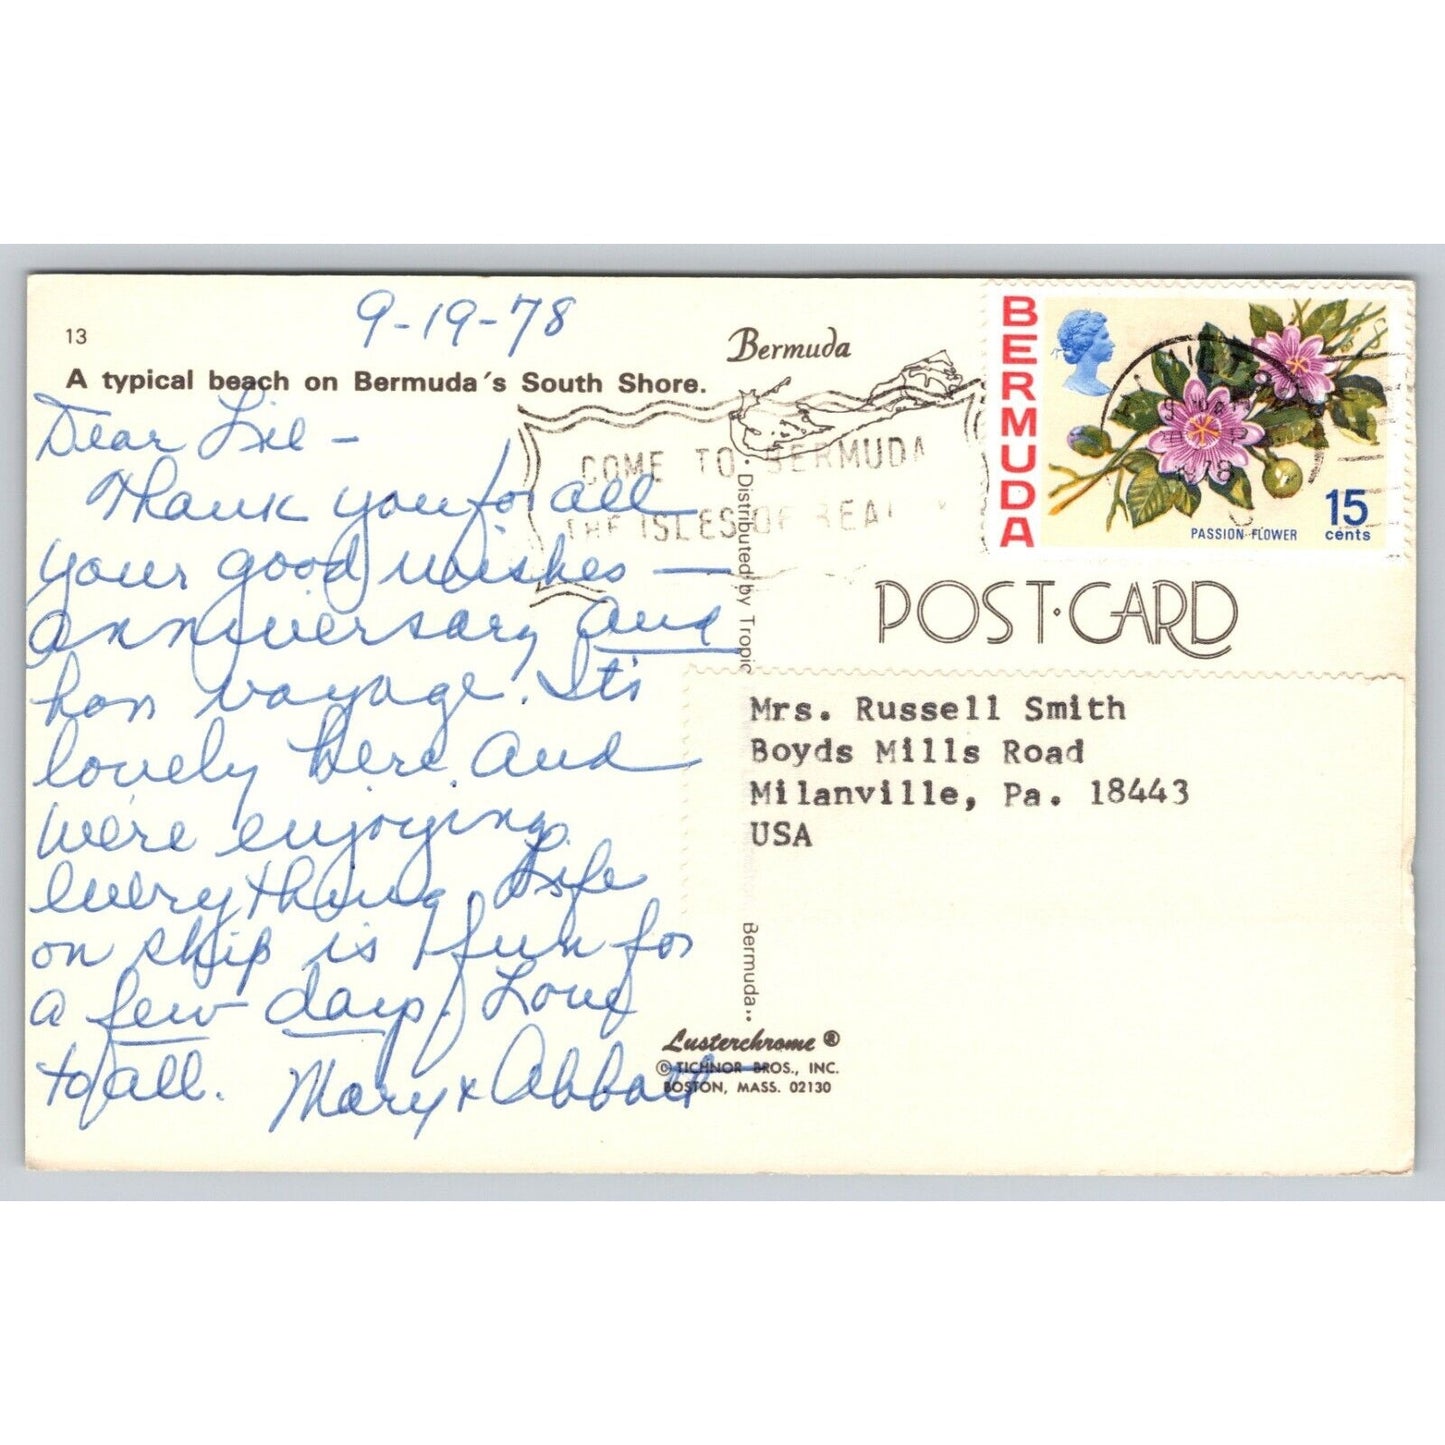 9-19-78
13
A typical beach on Bermuda's South Shore.
Dear Lil -
Thank you for all
your good wishes —
anniversary and
bon voyage. It's
lovely here and
we're enjoying
everything. Life
on ship is fun for
a few days! Love
to all. Mary & Abbott
Bermuda
COME TO BERMUDA
THE ISLES OF
BERMUDA
15
cents
PASSION FLOWER
POST·CARD
Distributed by Tropic
Bermuda..
Mrs. Russell Smith
Boyds Mills Road
Milanville, Pa. 18443
USA
Lusterchrome ®
© TICHNOR BROS., INC.
BOSTON, MASS. 02130